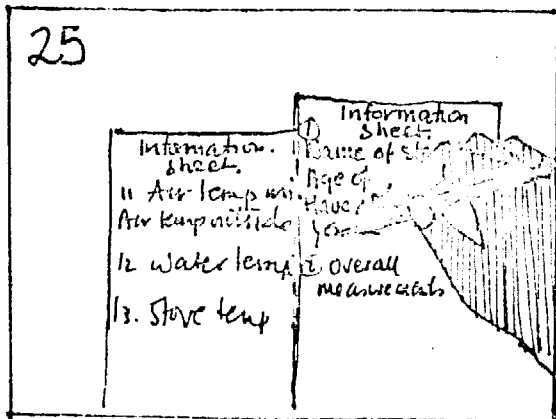 25
Information
sheet.
11 Air temp
Air temp outside
12 Water temp
13. Stove temp
Information
sheet.
①
Name of
Age of
Have
② overall
measurements